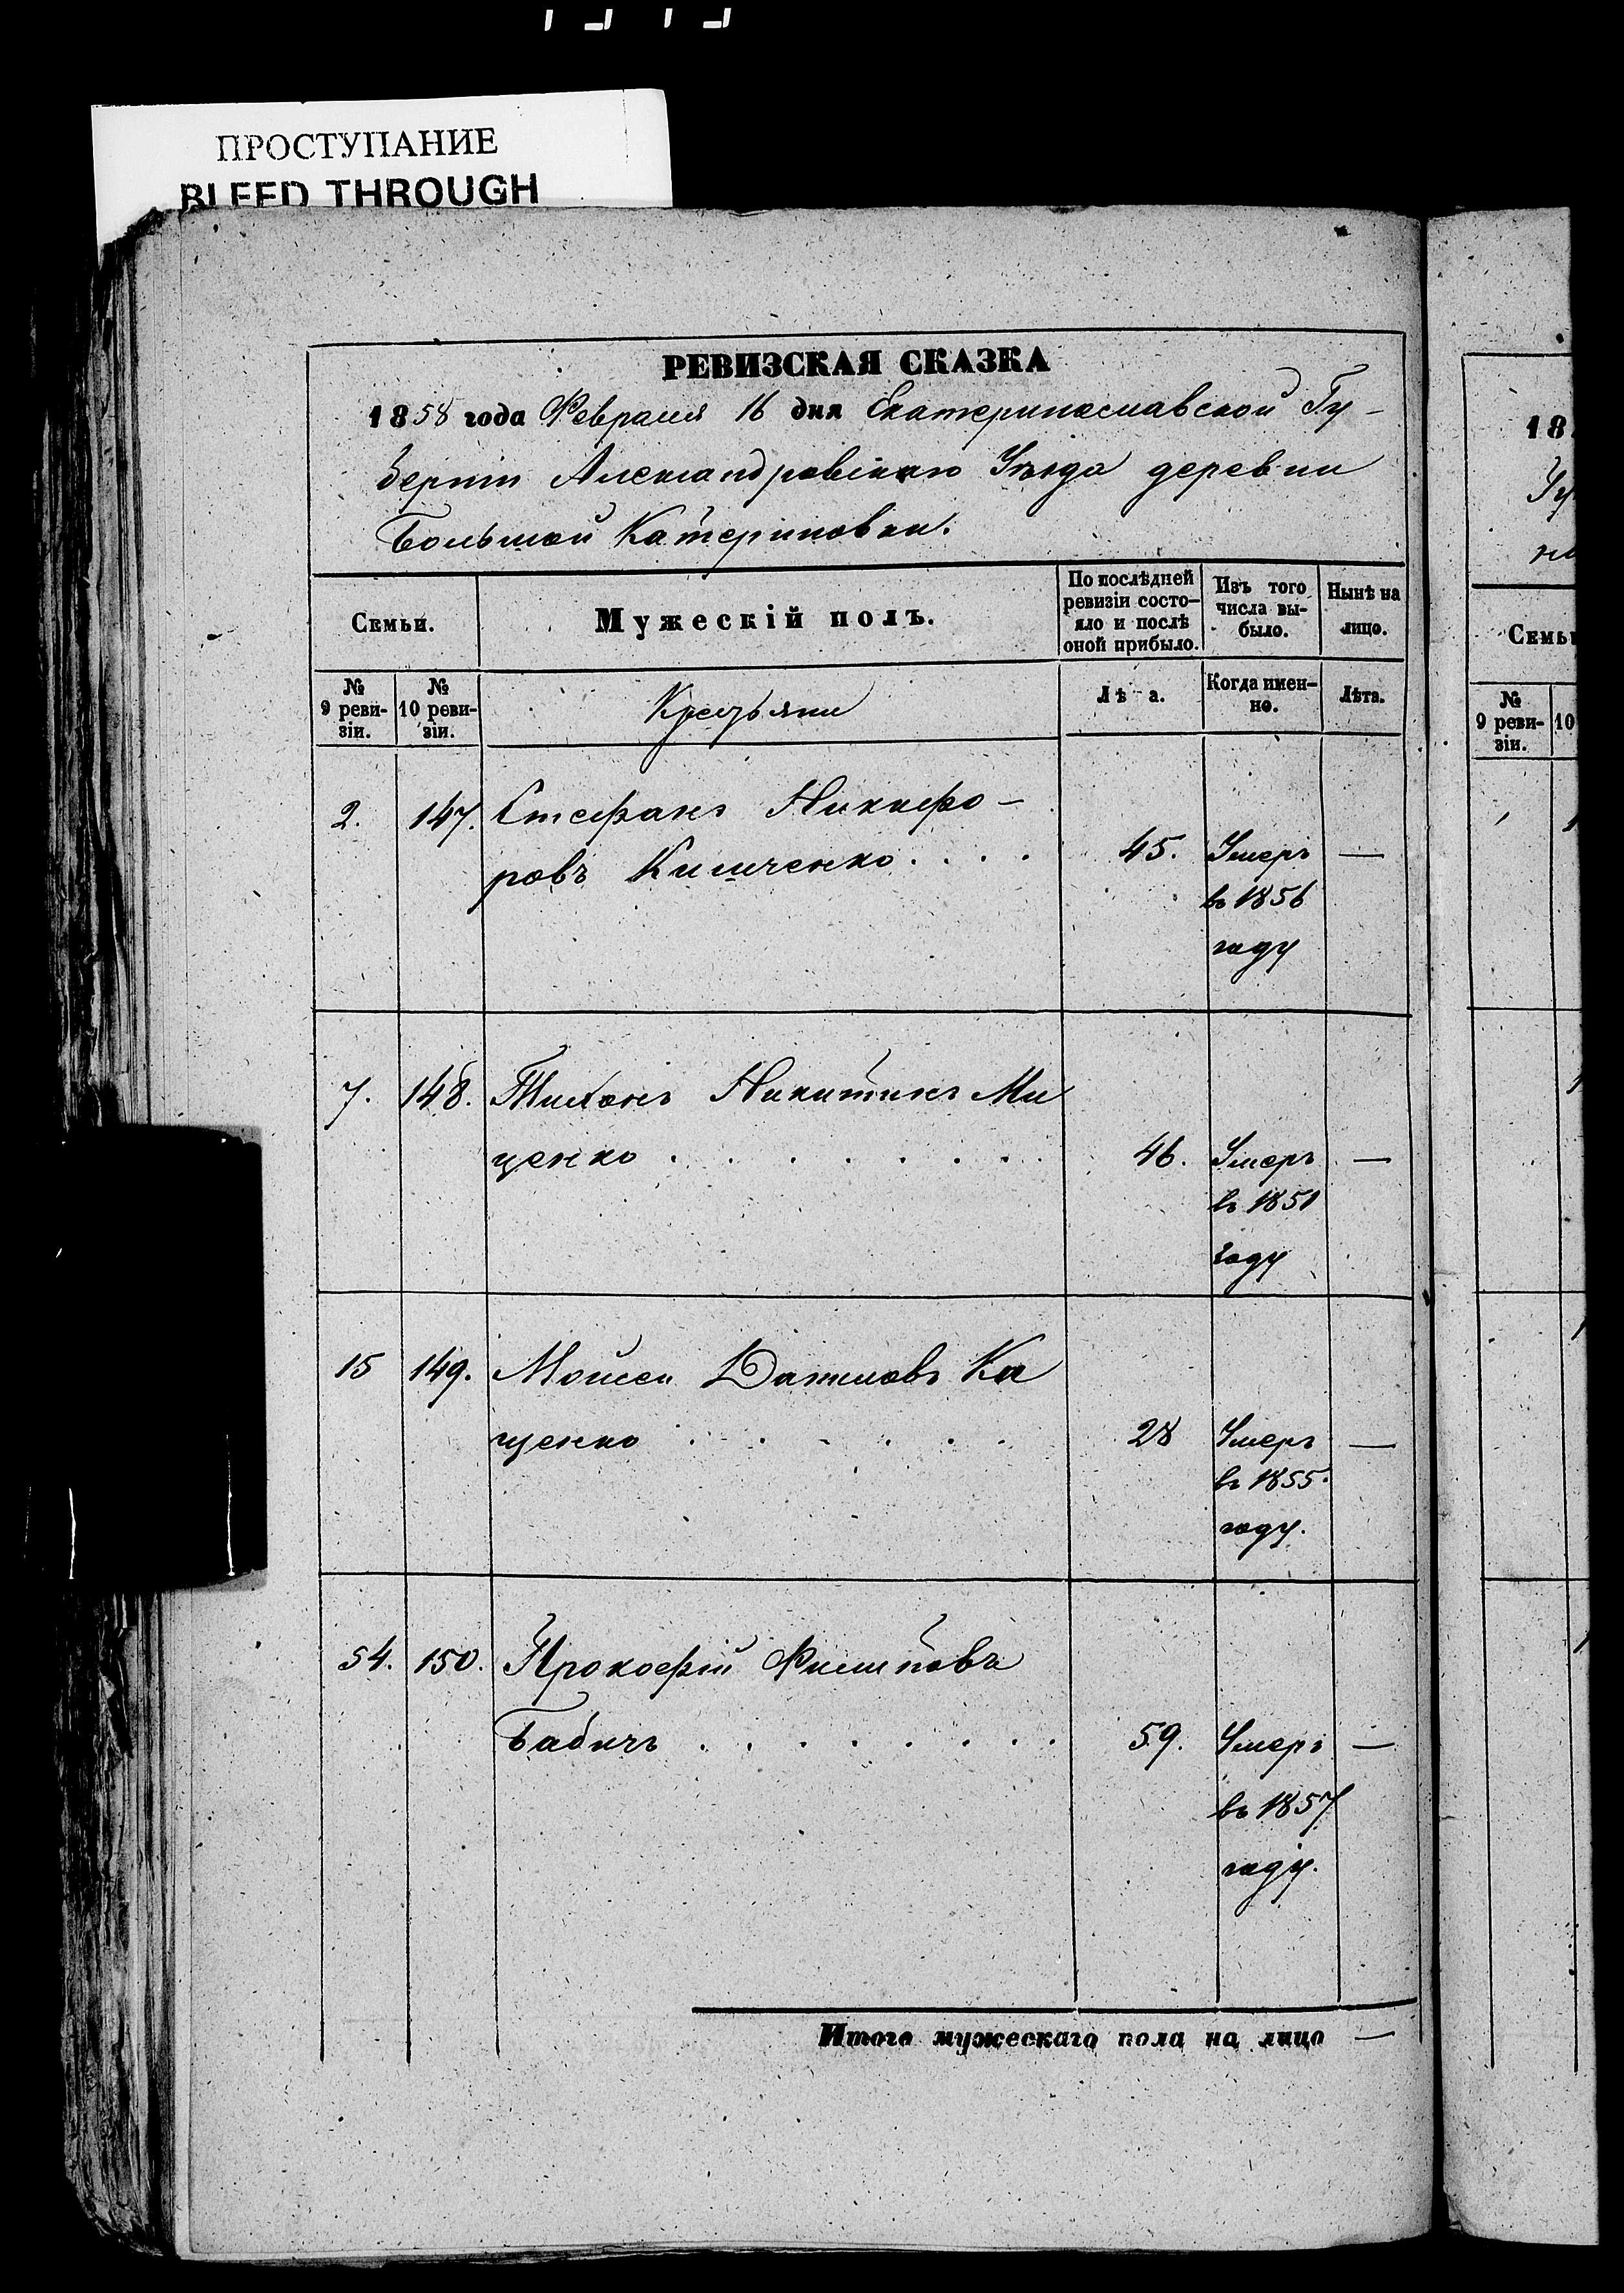 ПРОСТУПАНИЕ
BLEED THROUGH
РЕВИЗСКАЯ СКАЗКА
1858 года Февраля 16 дня Екатеринославской Гу-
берніи Александровскаго Уѣзда деревни
Большой Катериновки.
Семьи.
Мужескій полъ.
По послѣдней
ревизіи состо-
яло и послѣ
оной прибыло.
Изъ того
числа вы-
было.
Нынѣ на
лицо.
№
9 реви-
зіи.
№
10 реви-
зіи.
Крестьяни
Лѣ а.
Когда имен-
но.
Лѣта.
2. 147. Стефанъ Никифо-
ровъ . . . . 45. Умеръ —
въ 1856
году
7. 148. Тихонъ Никитинъ Ми
щенко . . . . . . . 46. Умеръ —
въ 1851
году
15 149. Моисей Даниловъ Ка
щенко . . . . . . 28 Умеръ —
въ 1855.
году.
54. 150. Прокофій Филиповъ
Бабичъ . . . . . . . 59. Умеръ —
въ 1857
году.
Итого мужескаго пола на лицо —
18
Гу
на
Семьи
№
9 реви-
зіи.
10